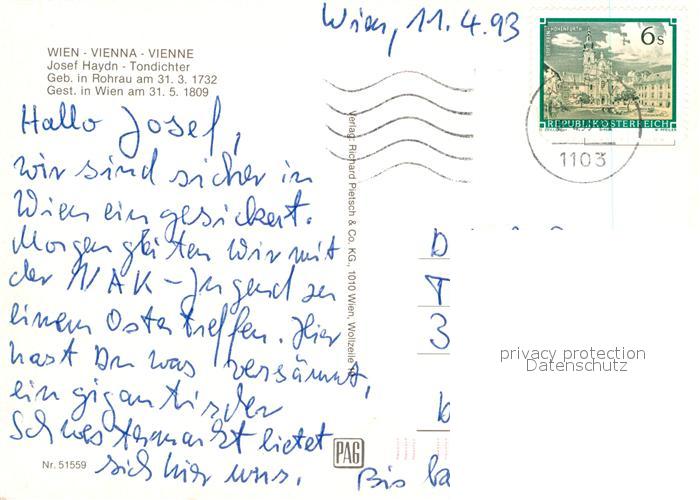 Wien, 11.4.93
WIEN - VIENNA - VIENNE
Josef Haydn - Tondichter
Geb. in Rohrau am 31. 3. 1732
Gest. in Wien am 31. 5. 1809
Hallo Josef,
wir sind sicher in
Wien eingesickert.
Morgen gleiten wir mit
der NAK-Jugend zu
einem Ostertreffen. Hier
hast Du was versäumt,
ein gigantischer
Schwesternmarkt bietet
sich hier uns.
Bis ba
Nr. 51559
Verlag: Richard Pietsch & Co. KG., 1010 Wien, Wollzeile
PAG
6s
REPUBLIK ÖSTERREICH
1103
D
T
3
privacy protection
Datenschutz